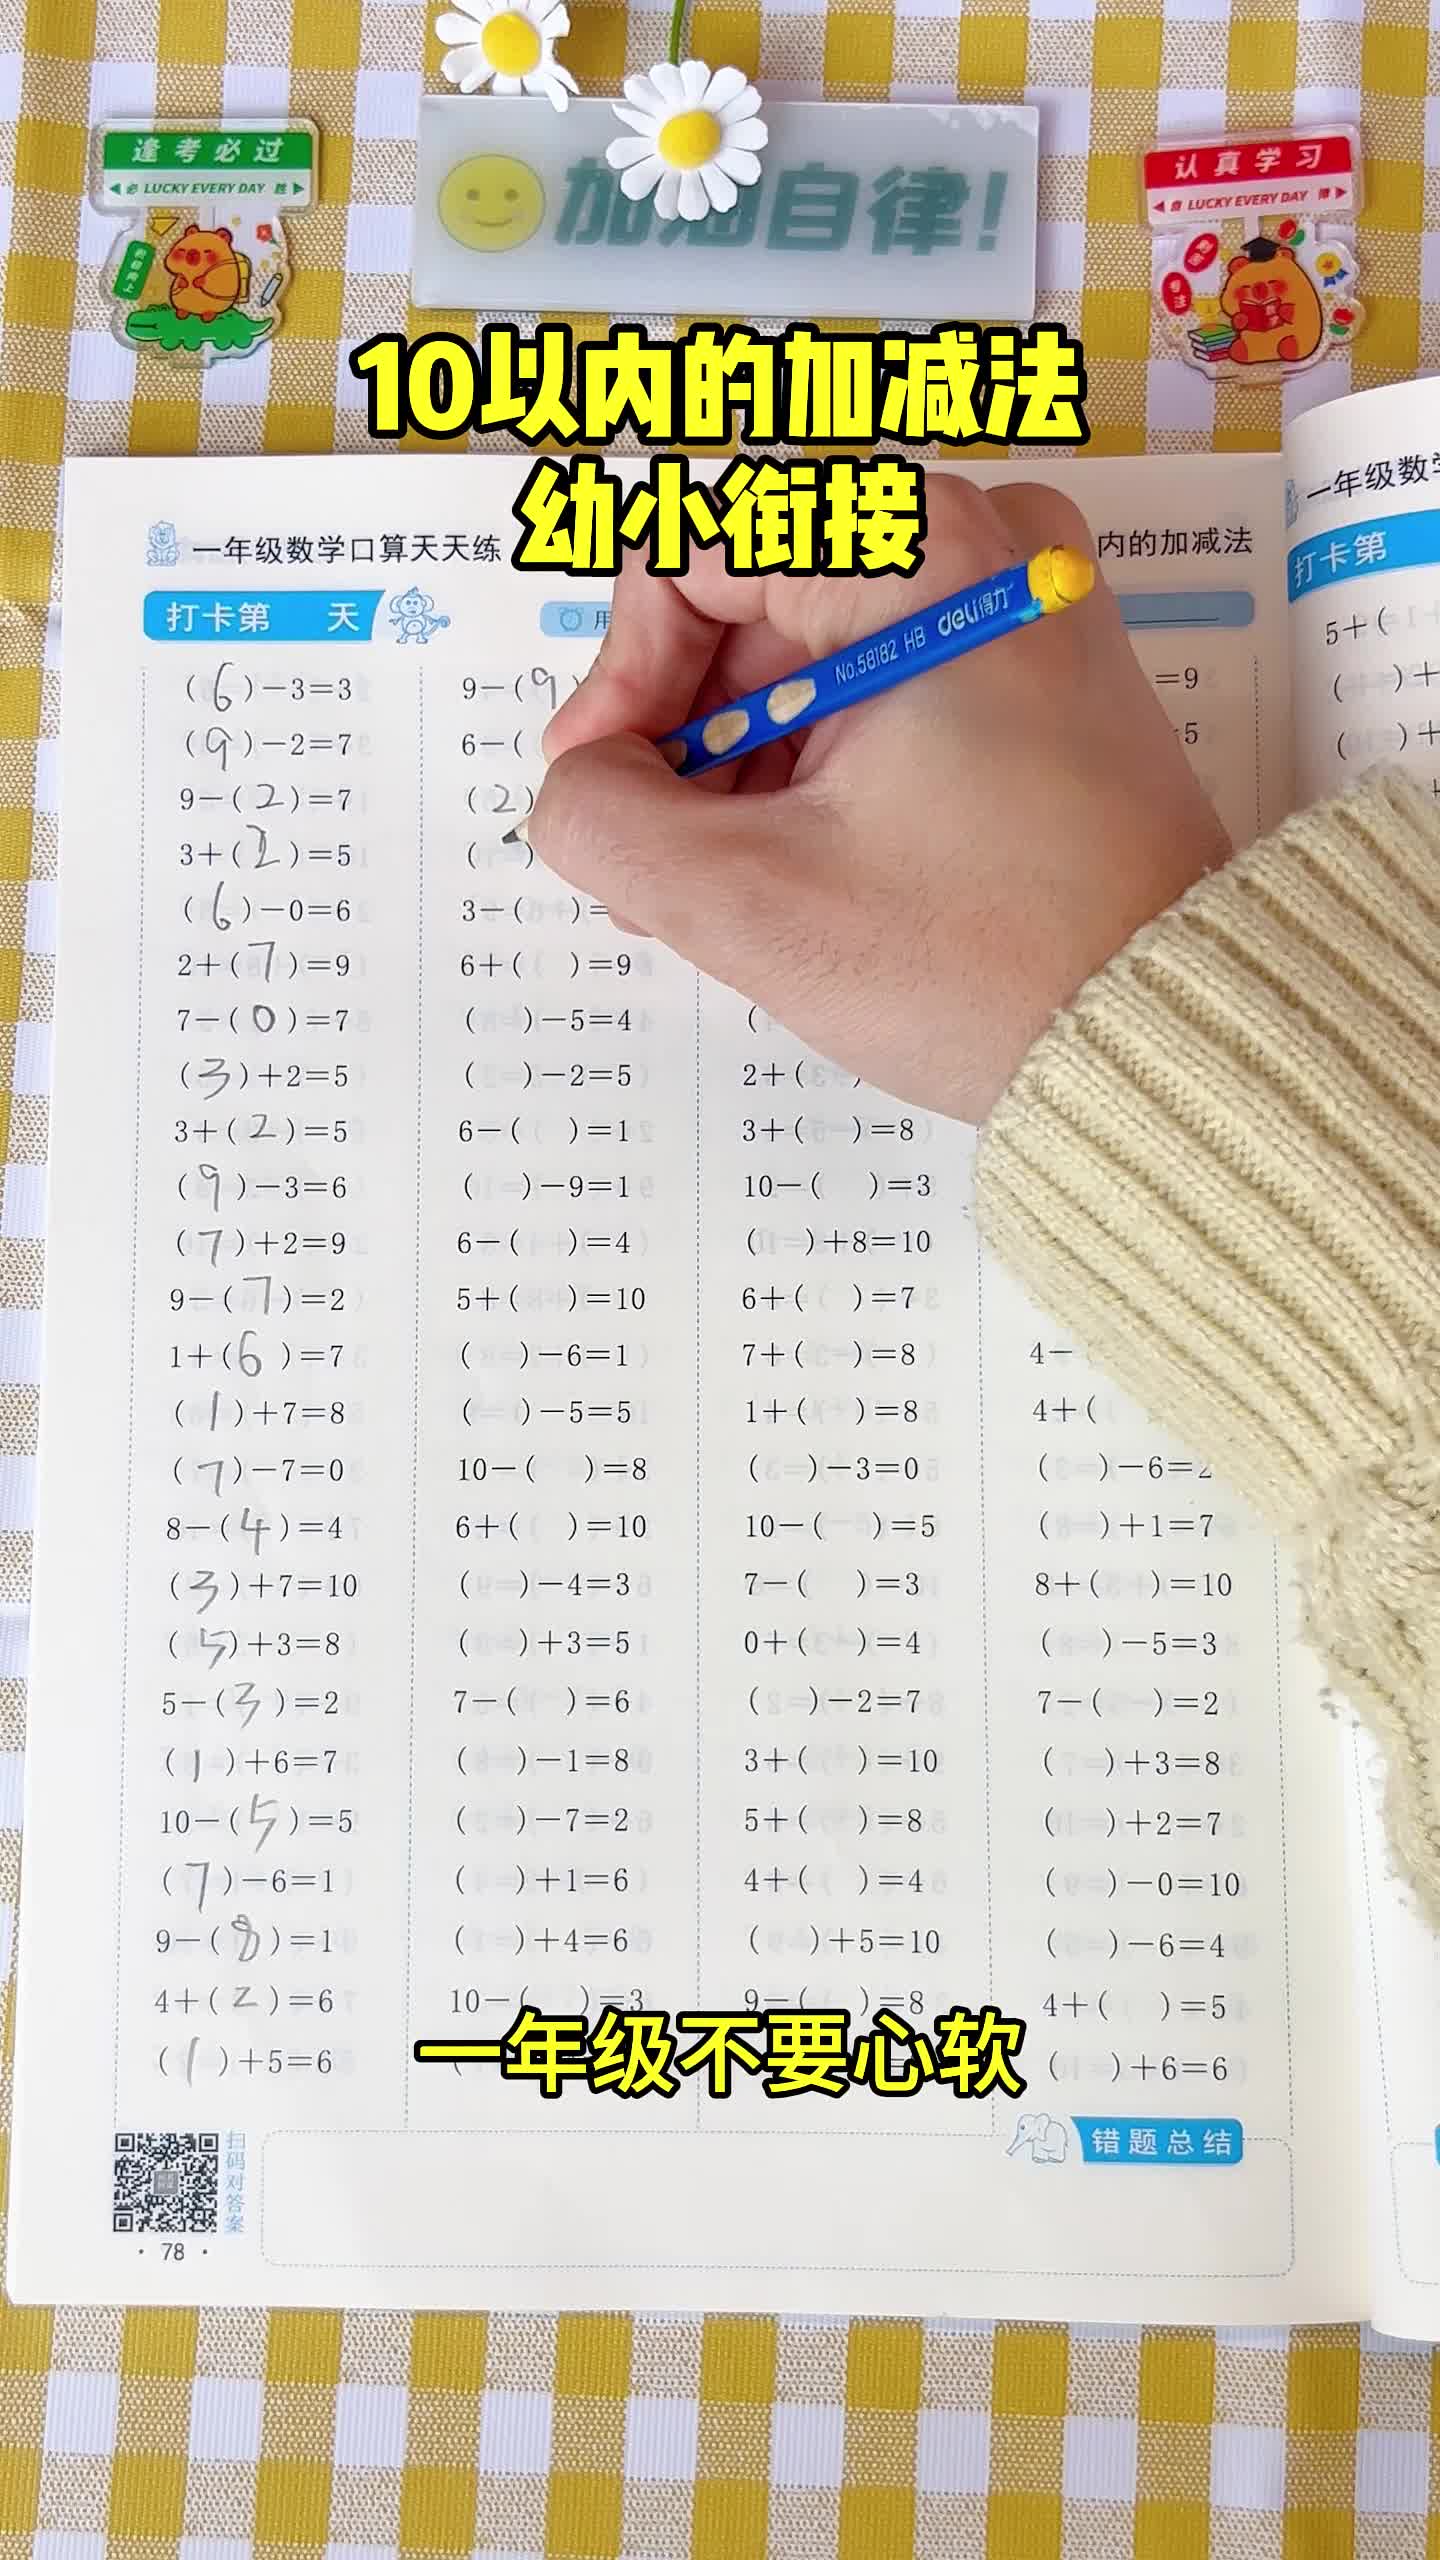 逢考必过
LUCKY EVERY DAY
加油自律!
认真学习
LUCKY EVERY DAY
专注
10以内的加减法
幼小衔接
一年级数学口算天天练
内的加减法
一年级数学
打卡第 天
用
打卡第
No.58182 HB deli得力
(6)-3=3
(9)-2=7
9-(2)=7
3+(2)=5
(6)-0=6
2+(7)=9
7-(0)=7
(3)+2=5
3+(2)=5
(9)-3=6
(7)+2=9
9-(7)=2
1+(6)=7
(1)+7=8
(7)-7=0
8-(4)=4
(3)+7=10
(5)+3=8
5-(3)=2
(1)+6=7
10-(5)=5
(7)-6=1
9-(8)=1
4+(2)=6
(1)+5=6
9-(9
6-(
(2)
( )
3-( )=
6+( )=9
( )-5=4
( )-2=5
6-( )=1
( )-9=1
6-( )=4
5+( )=10
( )-6=1
( )-5=5
10-( )=8
6+( )=10
( )-4=3
( )+3=5
7-( )=6
( )-1=8
( )-7=2
( )+1=6
( )+4=6
10-( )=3
(
2+(
3+( )=8
10-( )=3
( )+8=10
6+( )=7
7+( )=8
1+( )=8
( )-3=0
10-( )=5
7-( )=3
0+( )=4
( )-2=7
3+( )=10
5+( )=8
4+( )=4
( )+5=10
9-( )=8
=9
5
4-
4+(
( )-6=2
( )+1=7
8+( )=10
( )-5=3
7-( )=2
( )+3=8
( )+2=7
( )-0=10
( )-6=4
4+( )=5
( )+6=6
5+(
( )+
( )+
一年级不要心软
错题总结
扫码对答案
· 78 ·